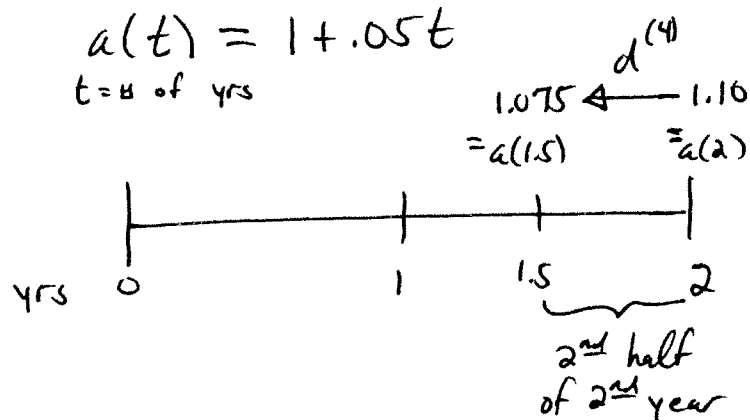 a(t) = 1 + .05t
t = # of yrs
d^(4)
1.075 ← 1.10
= a(1.5) = a(2)
yrs 0 1 1.5 2
2nd half
of 2nd year